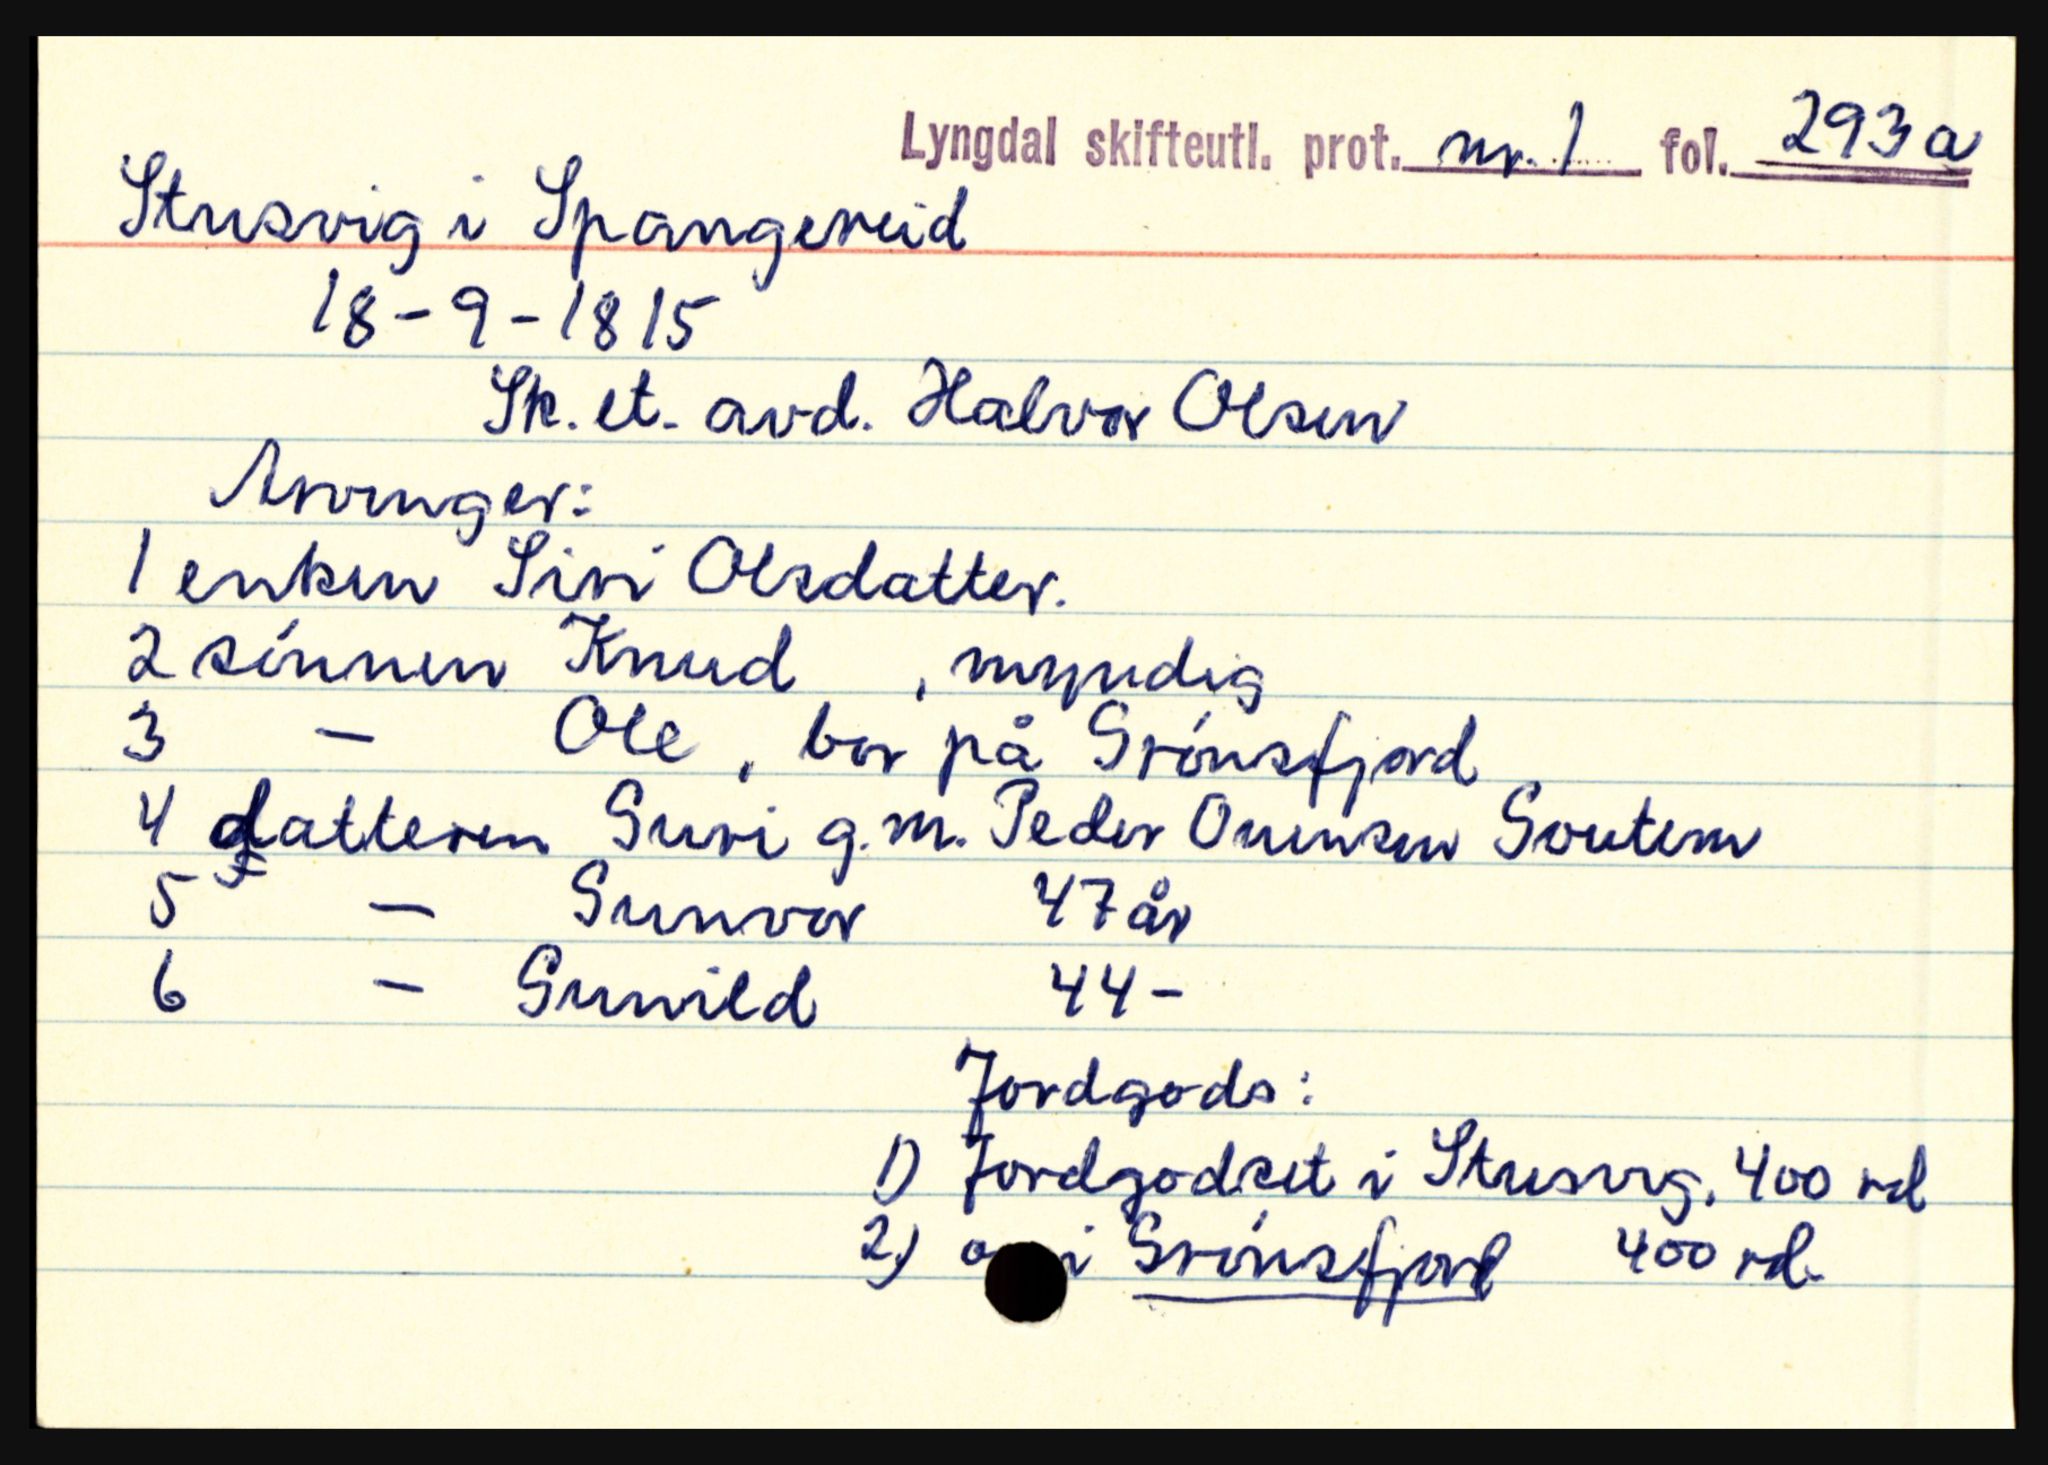 Lyngdal skifteutl. prot. nr. 1 fol. 293 a
Stusvig i Spangereid
18-9-1815
Sk. et. avd. Halvor Olsen
Arvinger:
1 enken Siri Olsdatter.
2 sönnen Knud , myndig
3 - Ole , bor på Grönsfjord
4 datteren Guri g.m. Peder Ouensen
5 - Gunvor 47 år
6 - Gunvild 44 -
Jordgods:
1) Jordgodset i Stusvig, 400 rd
2) i Grönsfjord 400 rd.